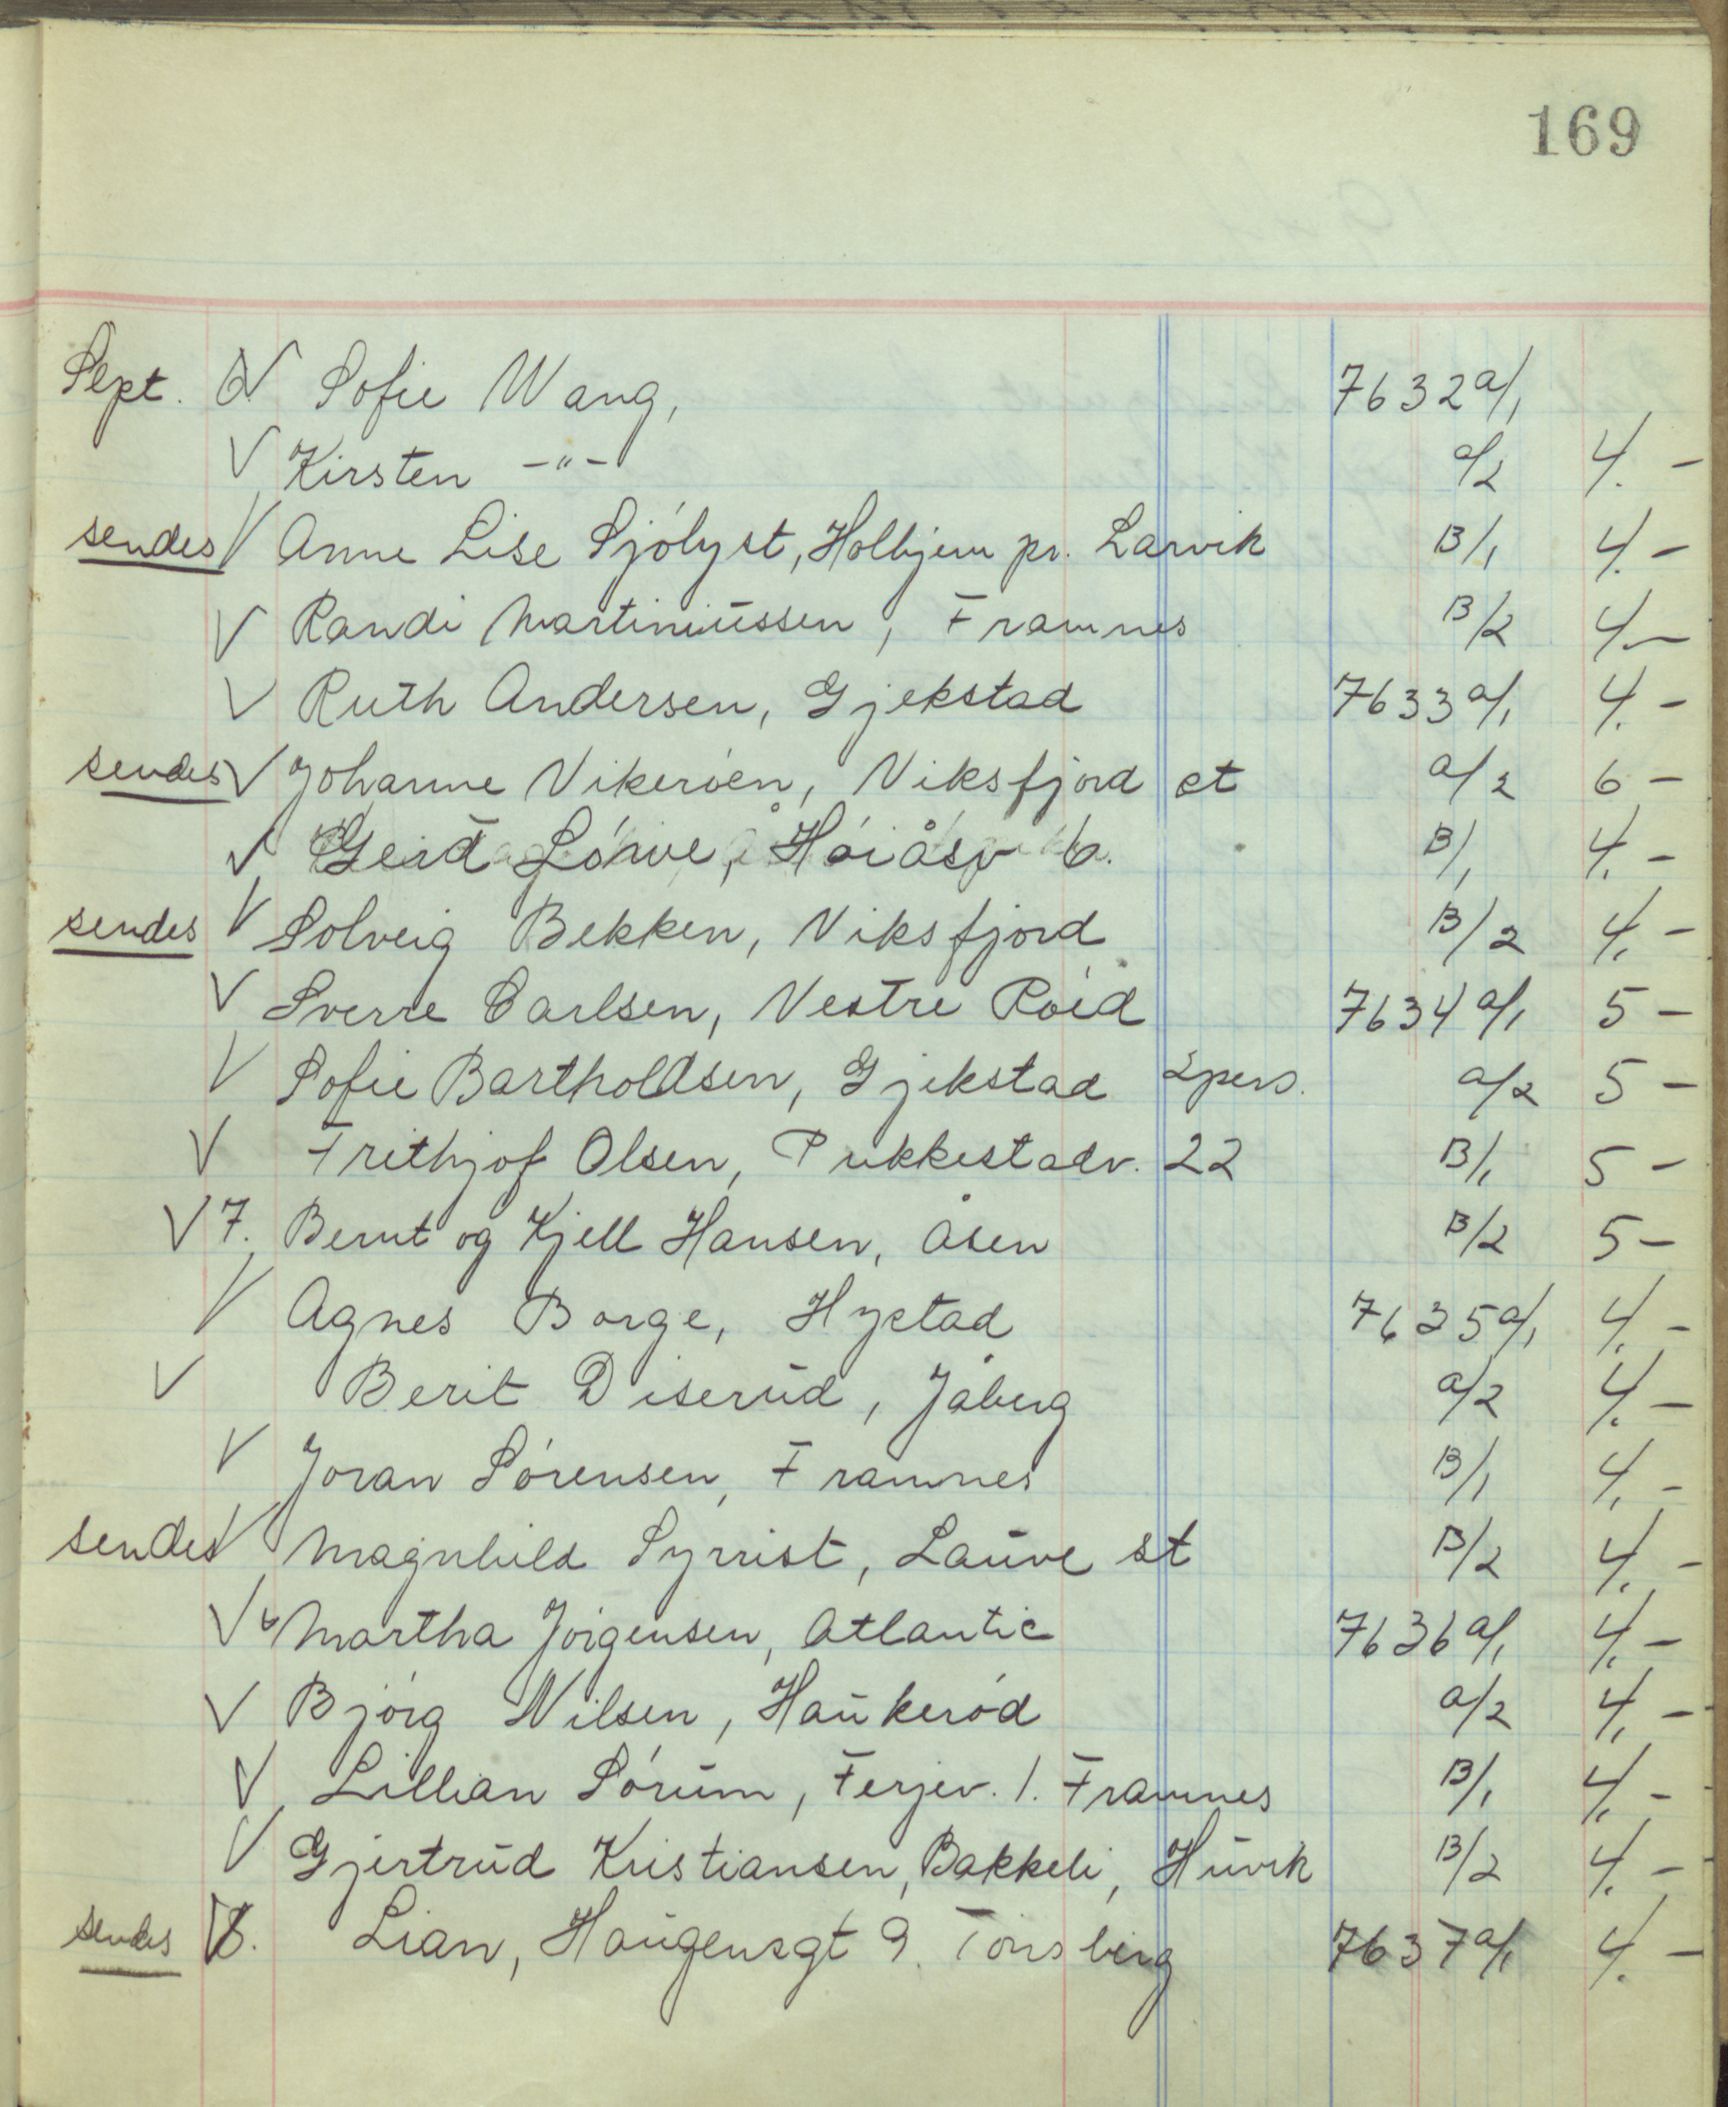 169
Sept. 6. V Sofie Wang, 7632 a/1
V Kirsten -"- a/2 4. -
sendes V Anne Lise Sjólyst, Holhjem pr. Larvik B/1 4. -
V Randi Martiniussen, Framnes B/2 4. -
V Ruth Andersen, Gjekstad 7633 a/1 4. -
sendes V Johanne Vikeróen, Viksfjord st a/2 6 -
V Gerd Lórve, Hóiåsv 6. B/1 4. -
sendes V Solveig Bekken, Viksfjord B/2 4. -
V Sverre Carlsen, Vestre Róid 7634 a/1 5 -
V Sofie Bartholdsen, Gjekstad 2 pers. a/2 5 -
V Frithjof Olsen, Pukkestadv. 22 B/1 5 -
V 7. Bernt og Kjell Hansen, Åsen B/2 5 -
V Agnes Borge, Hystad 7635 a/1 4. -
V Berit Diserud, Jåberg a/2 4. -
V Joran Sórensen, Framnes B/1 4. -
sendes V Magnhild Syrrist, Lauve st B/2 4. -
V Martha Jórgensen, Atlantic 7636 a/1 4. -
V Bjórg Nilsen, Haukeród a/2 4. -
V Lillian Sórum, Ferjev. 1. Framnes B/1 4. -
V Gjertrud Kristiansen, Bakkeli, Huvik B/2 4. -
sendes V 8. Lian, Haugensgt 9. Tónsberg 7637 a/1 4. -